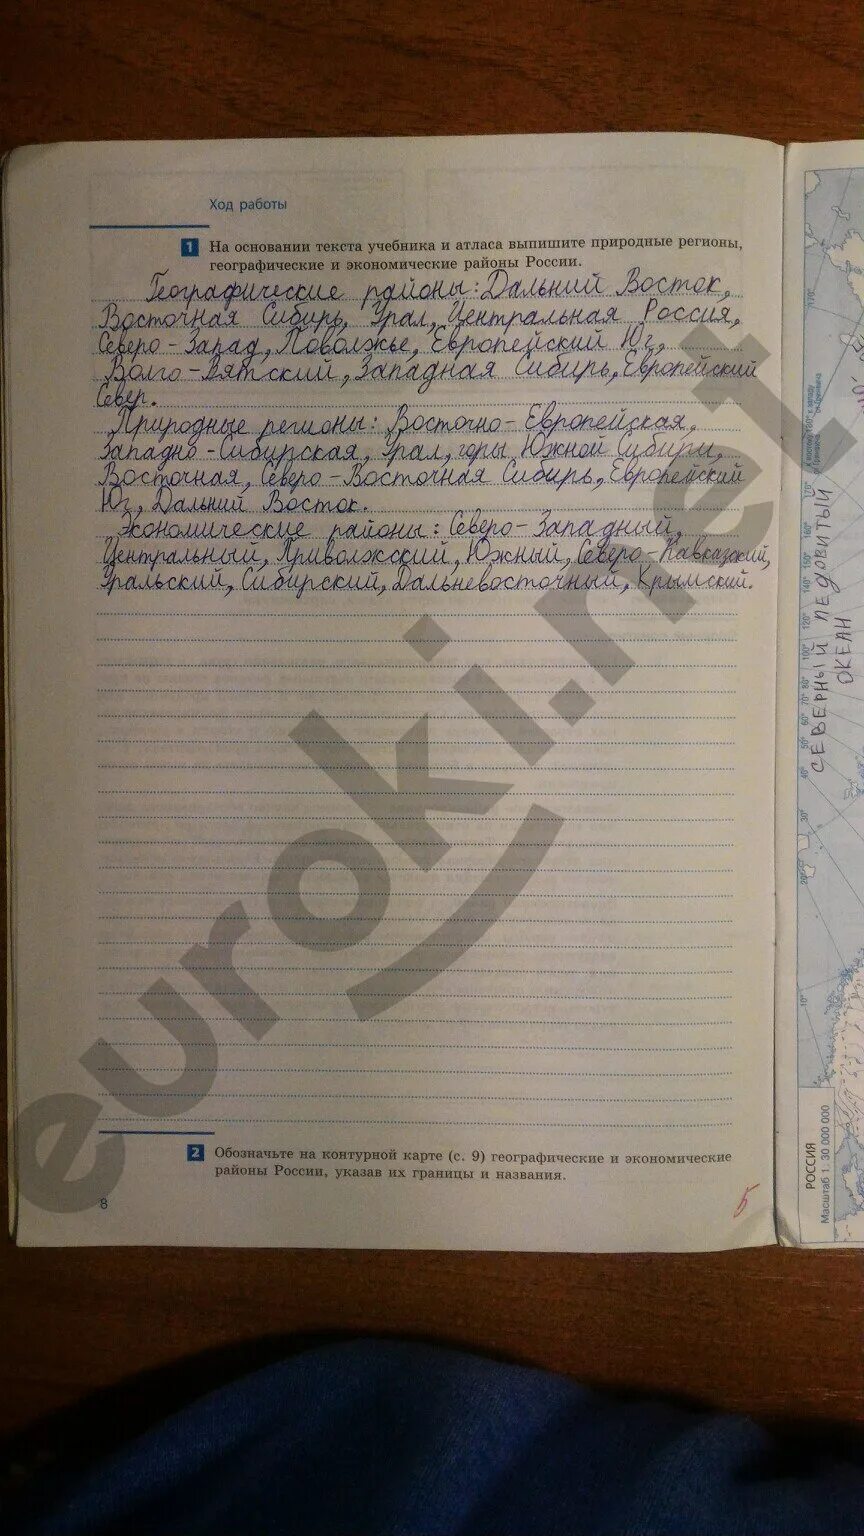 Ход работы
1 На основании текста учебника и атласа выпишите природные регионы,
географические и экономические районы России.
Географические районы: Дальний Восток,
Восточная Сибирь, Урал, Центральная Россия,
Северо-Запад, Поволжье, Европейский Юг,
Волго-Вятский, Западная Сибирь, Европейский
Север.
Природные регионы: Восточно-Европейская,
Западно-Сибирская, Урал, горы Южной Сибири,
Восточная, Северо-Восточная Сибирь, Европейский
Юг, Дальний Восток.
Экономические районы: Северо-Западный,
Центральный, Приволжский, Южный, Северо-Кавказский,
Уральский, Сибирский, Дальневосточный, Крымский.
2 Обозначьте на контурной карте (с. 9) географические и экономические
районы России, указав их границы и названия.
8
5
euroki.net
СЕВЕРНЫЙ ЛЕДОВИТЫЙ
ОКЕАН
РОССИЯ
Масштаб 1: 30 000 000